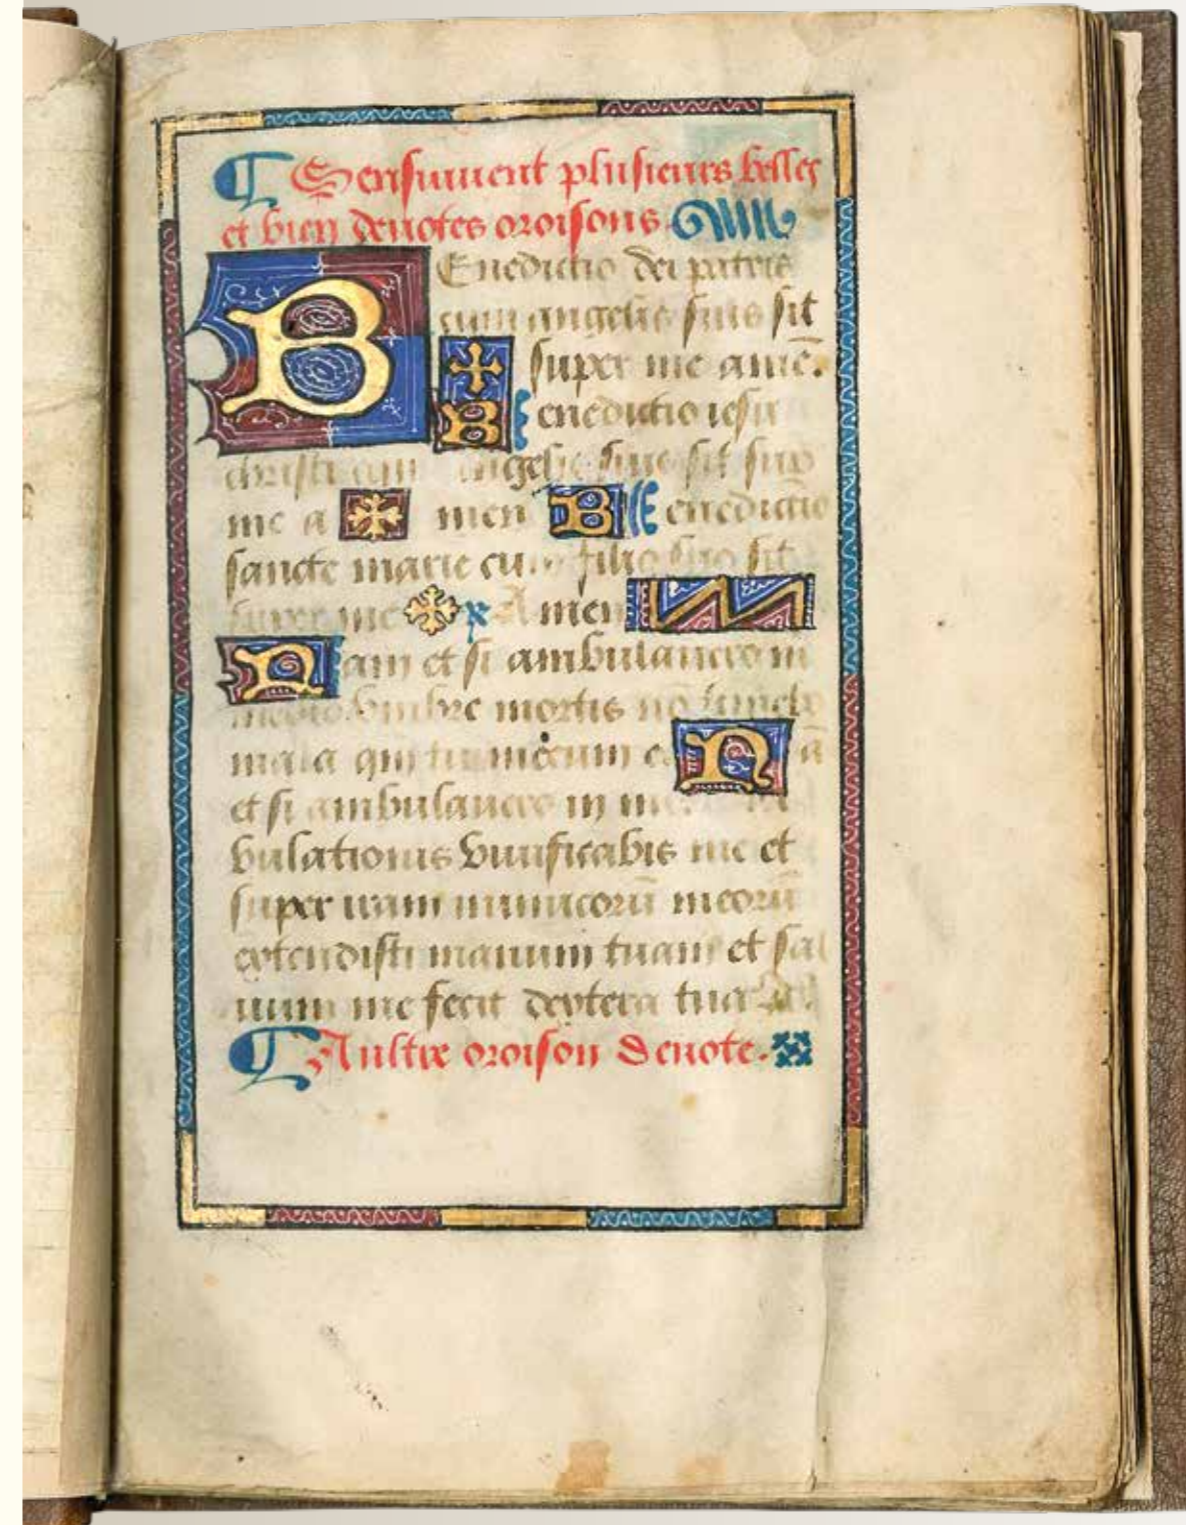 ¶ Sensuiuent plusieurs belles
et bien deuotes oroisons
BEnedictio dei patris
cum angelis suis sit
super me amē.
Benedictio iesu
christi cum angelis suis sit sup
me a ✠ men Benedictio
sancte marie cu filio suo sit
super me ✠ Amen
Nam et si ambulauero in
medio vmbre mortis no timebo
mala qm tu mecum e Nā
et si ambulauero in
bulationis viuificabis me et
super iram inimicorū meorū
extendisti manum tuam et sal
uum me fecit dextera tua
¶ Aultre oroison deuote.